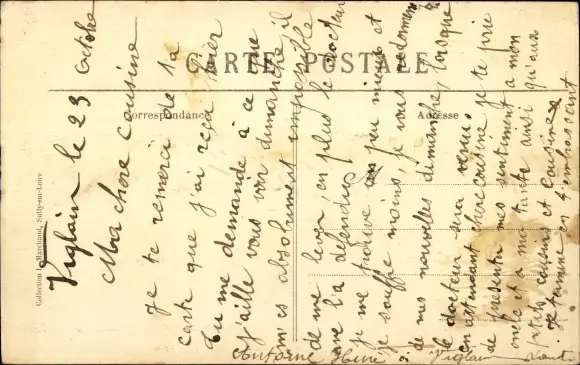 CARTE POSTALE
Correspondance
Adresse
Collection L. Marchand, Sully-sur-Loire
Viglain le 23 Octobre
Ma chère cousine
Je te remerci de ta
carte que j'ai reçu hier
tu me demande à ce que
j'aille vous voir dimanche, il
m'es absolument impossible
de me lever, en plus le docteur
me l'a défendu
je me trouve un peu mieux et
je souffre moins, je vous redonnerai
de mes nouvelles dimanche, lorsque
le docteur sera venu.
en attendant chère cousine je te prie
de présenter mes sentiments a mon
oncle et a ma tante ainsi qu'aux
petits cousins et cousines
Je termine en t'embrassant
Antoine à Viglain Loiret